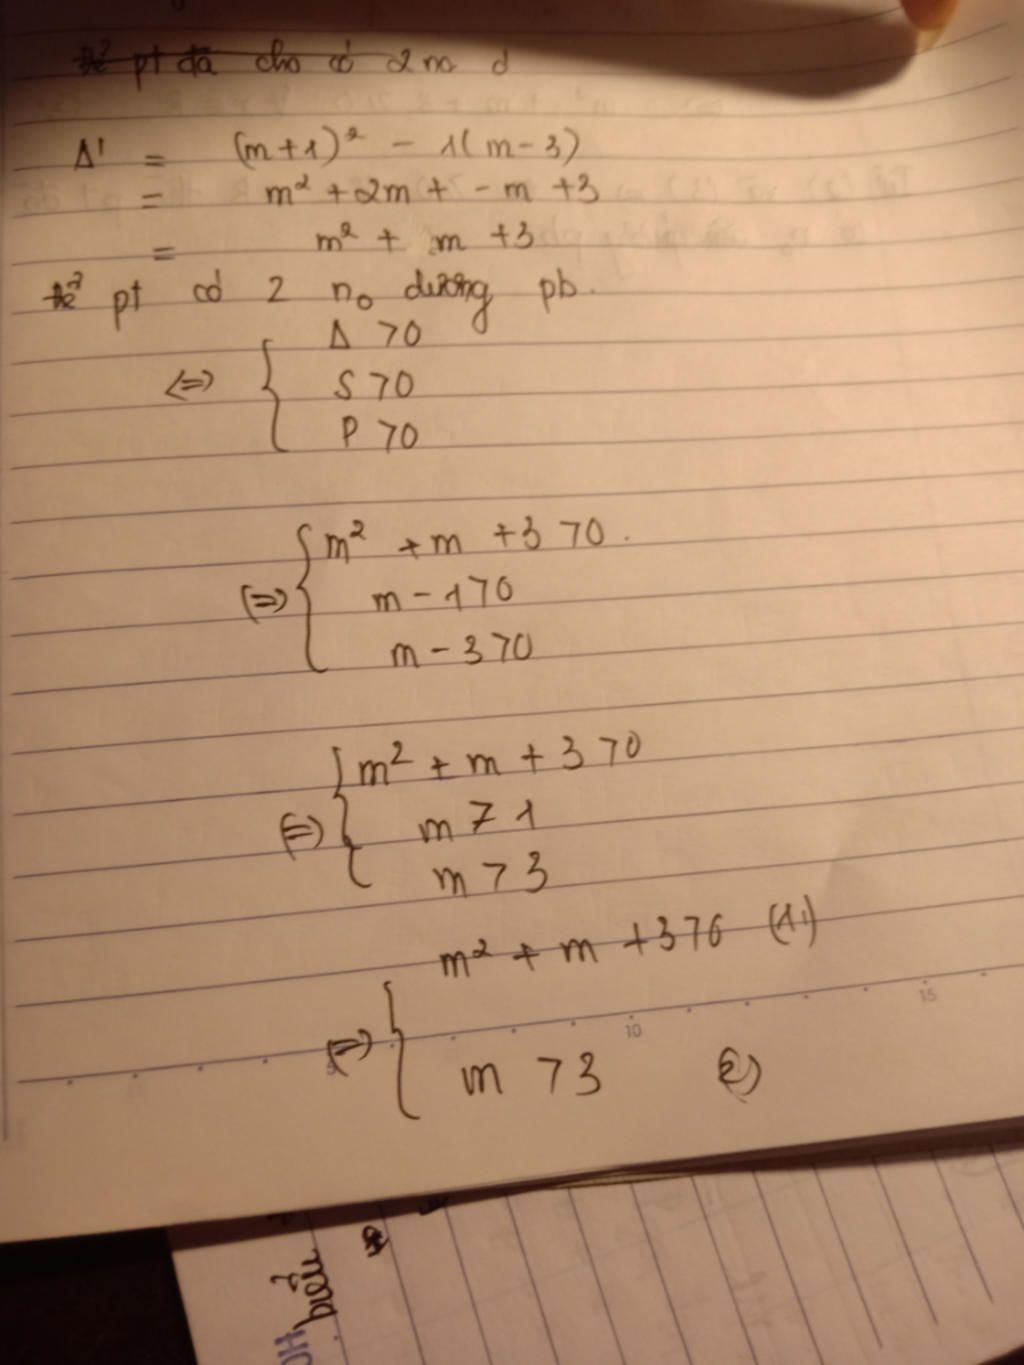 để pt đã cho có 2 no d
Δ' = (m+1)² - 1(m-3)
= m² + 2m + - m + 3
= m² + m + 3
để pt có 2 no dương pb.
Δ > 0
<=> { S > 0
P > 0
m² + m + 3 > 0.
(=>) { m - 1 > 0
m - 3 > 0
m² + m + 3 > 0
(=>) { m > 1
m > 3
m² + m + 3 > 0 (1)
(=>) {
10 15
m > 3 (2)
biểu